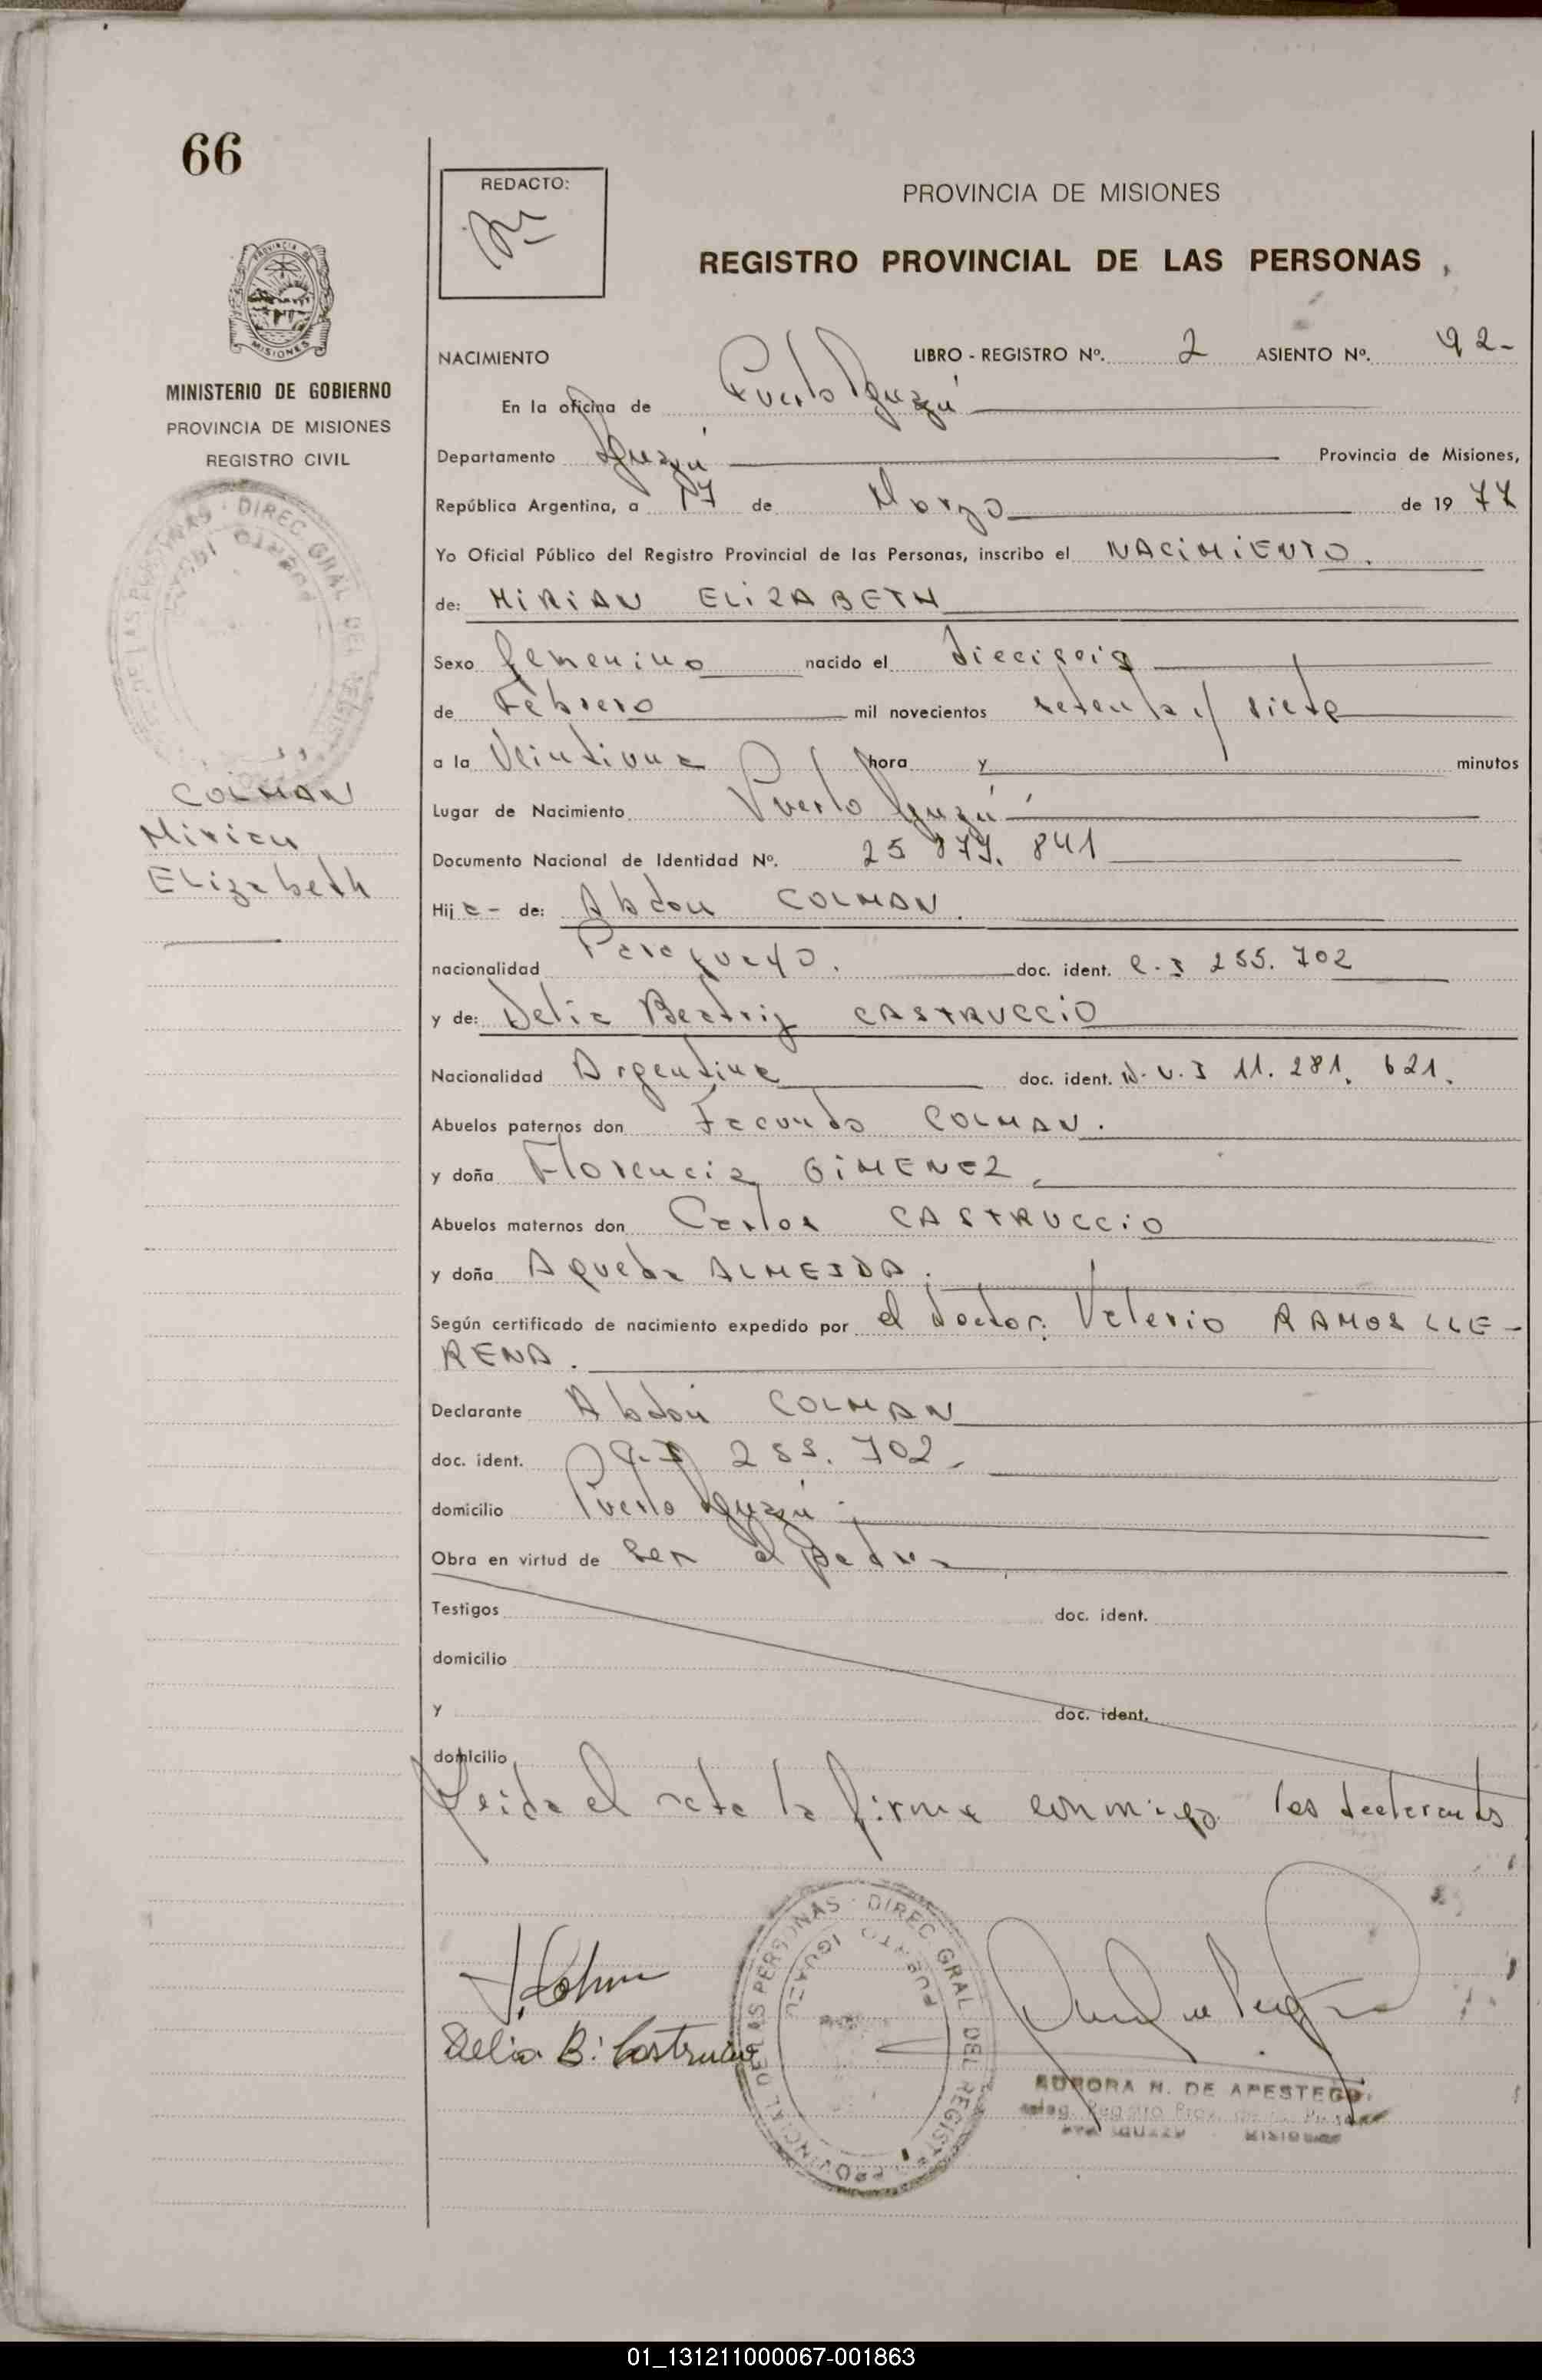 66
REDACTO:
PROVINCIA DE MISIONES
REGISTRO PROVINCIAL DE LAS PERSONAS
PROVINCIA DE
MISIONES
MINISTERIO DE GOBIERNO
PROVINCIA DE MISIONES
REGISTRO CIVIL
COLMAN
Mirian
Elizabeth
NACIMIENTO LIBRO - REGISTRO Nº. 2 ASIENTO Nº. 92-
En la oficina de Puerto Iguazú
Departamento Iguazú Provincia de Misiones,
República Argentina, a 17 de Marzo de 19 77
Yo Oficial Público del Registro Provincial de las Personas, inscribo el NACIMIENTO.
de: MIRIAN ELIZABETH
Sexo femenino nacido el dieciseis
de Febrero mil novecientos setenta y siete
a la Veintiuna hora y minutos
Lugar de Nacimiento Puerto Iguazú
Documento Nacional de Identidad Nº. 25 877. 841
Hija- de: Abdon COLMAN.
nacionalidad Paraguayo. doc. ident. C.I 255. 702
y de: Delia Beatriz CASTRUCCIO
Nacionalidad Argentina doc. ident. D.N.I 11. 281. 621.
Abuelos paternos don Facundo COLMAN.
y doña Florencia GIMENEZ
Abuelos maternos don Carlos CASTRUCCIO
y doña Agueda ALMEIDA.
Según certificado de nacimiento expedido por el doctor: Valerio RAMOS LLE-
RENA.
Declarante Abdón COLMAN
doc. ident. C.I 255. 702
domicilio Puerto Iguazú
Obra en virtud de Ser el padre
Testigos doc. ident.
domicilio
y doc. ident.
domicilio
Leida el acta la firma conmigo los declarantes
Delia B. Castruccio
DIREC. GRAL. DEL REGISTRO PROVINCIAL DE LAS PERSONAS
PUERTO IGUAZU
AURORA N. DE APESTEGUI
Deleg. Registro Prov. de las Personas
PTO IGUAZU MISIONES
01_131211000067-001863